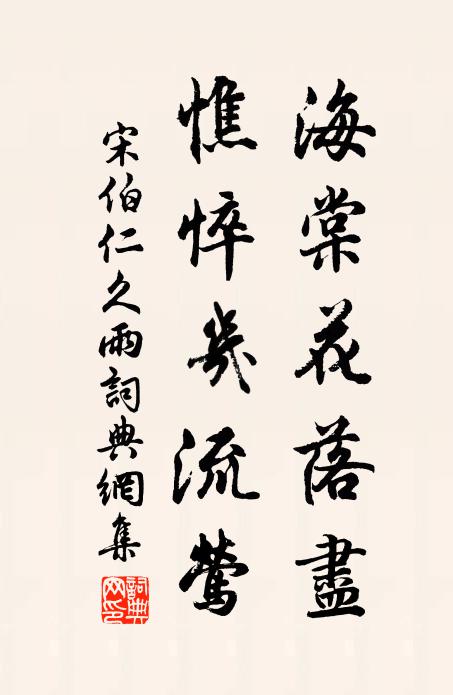 海棠花落盡
憔悴幾流鶯
宋伯仁久雨詞典網集
詞典網印